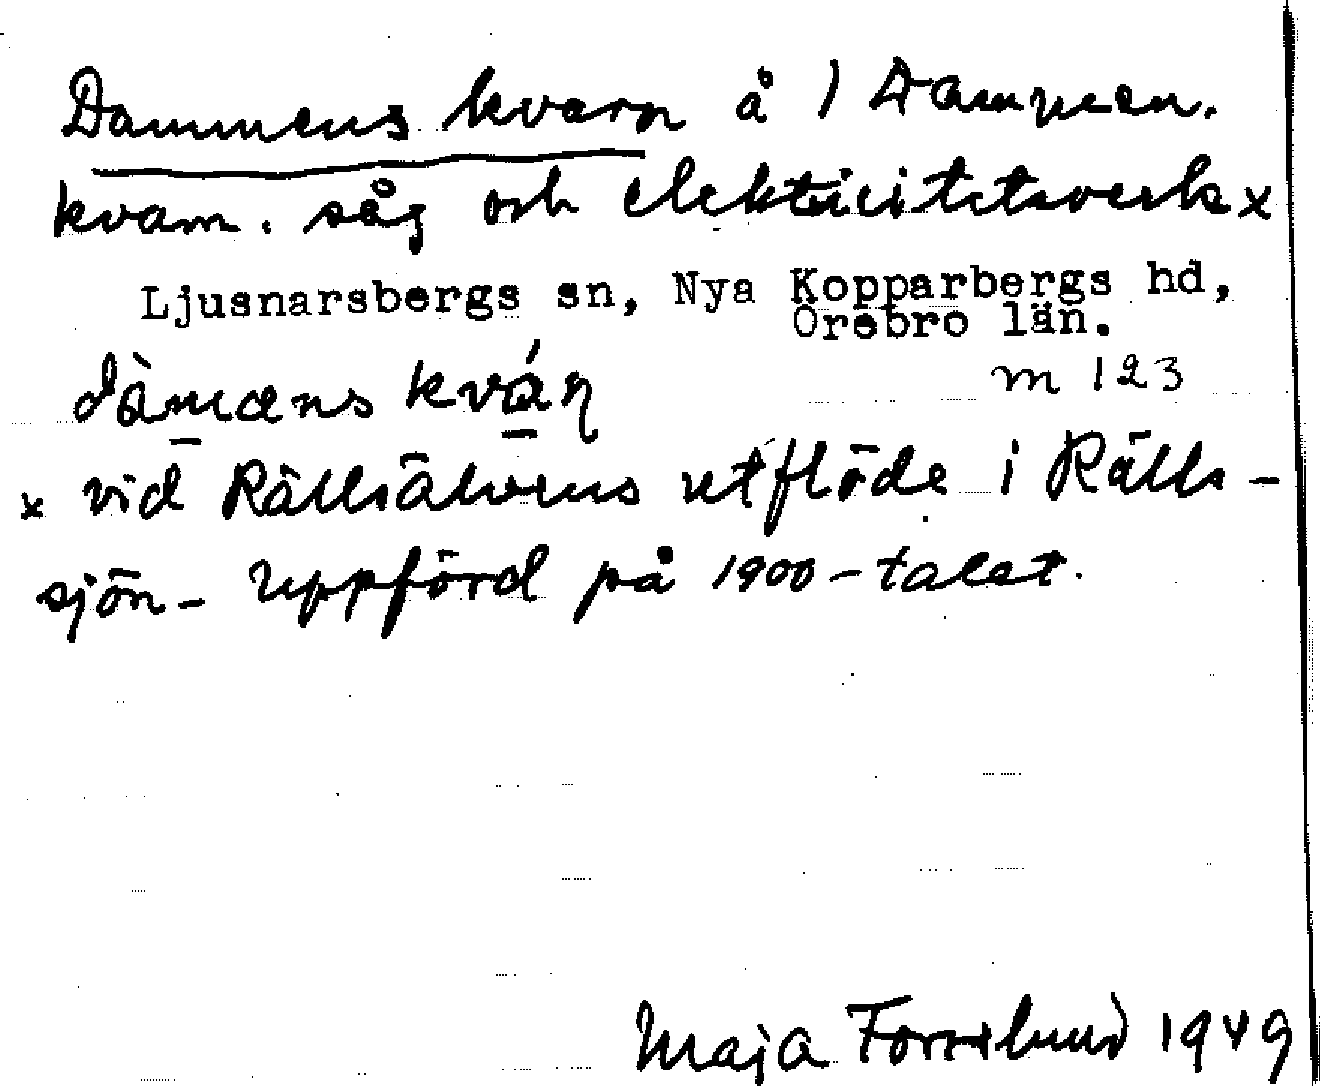 Dammens kvarn å 1 Dammen.
kvarn, såg och elektricitetsverk x
Ljusnarsbergs sn, Nya Kopparbergs hd,
Örebro län.
m 123
dàmæns kvá̱ɳ
x vid Rällsälvens utflöde i Rälls-
sjön - Uppförd på 1900-talet.
Maja Forsslund 1949